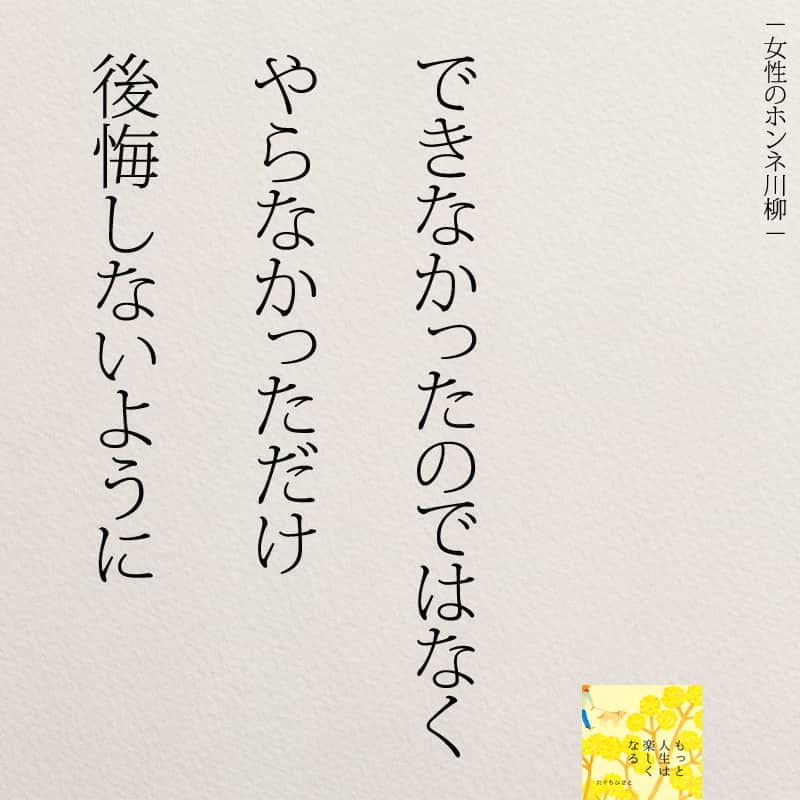 ―女性のホンネ川柳―
できなかったのではなく
やらなかっただけ
後悔しないように
もっと
人生は
楽しく
なる
たぐちひさと